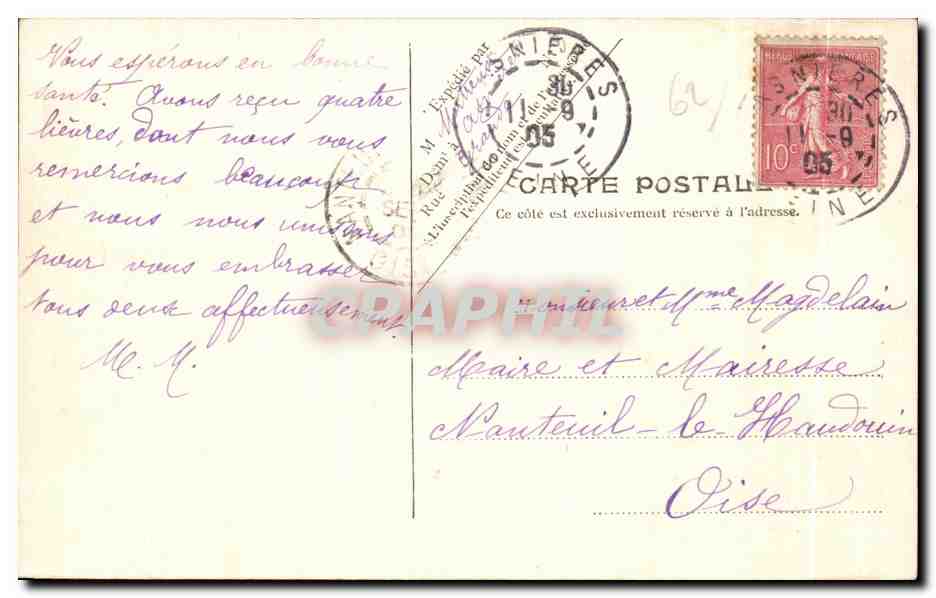 Vous espérons en bonne
santé. Avons reçu quatre
lièvres, dont nous vous
remercions beaucoup
et nous nous unissons
pour vous embrasser
tous deux affectueusement
M. M.
Expédié par
M
Dem<sup>t</sup> à
Rue
L'inscription du nom et de l'adresse de
l'expéditeur est
ASNIERES
11 30
-9
05
SEINE
SE
CARTE POSTALE
Ce côté est exclusivement réservé à l'adresse.
62/
10c
ASNIERES
11 30
-9
05
SEINE
CPAPHIL
Monsieur et Mme Magdelain
Maire et Mairesse
Nanteuil-le-Haudouin
Oise